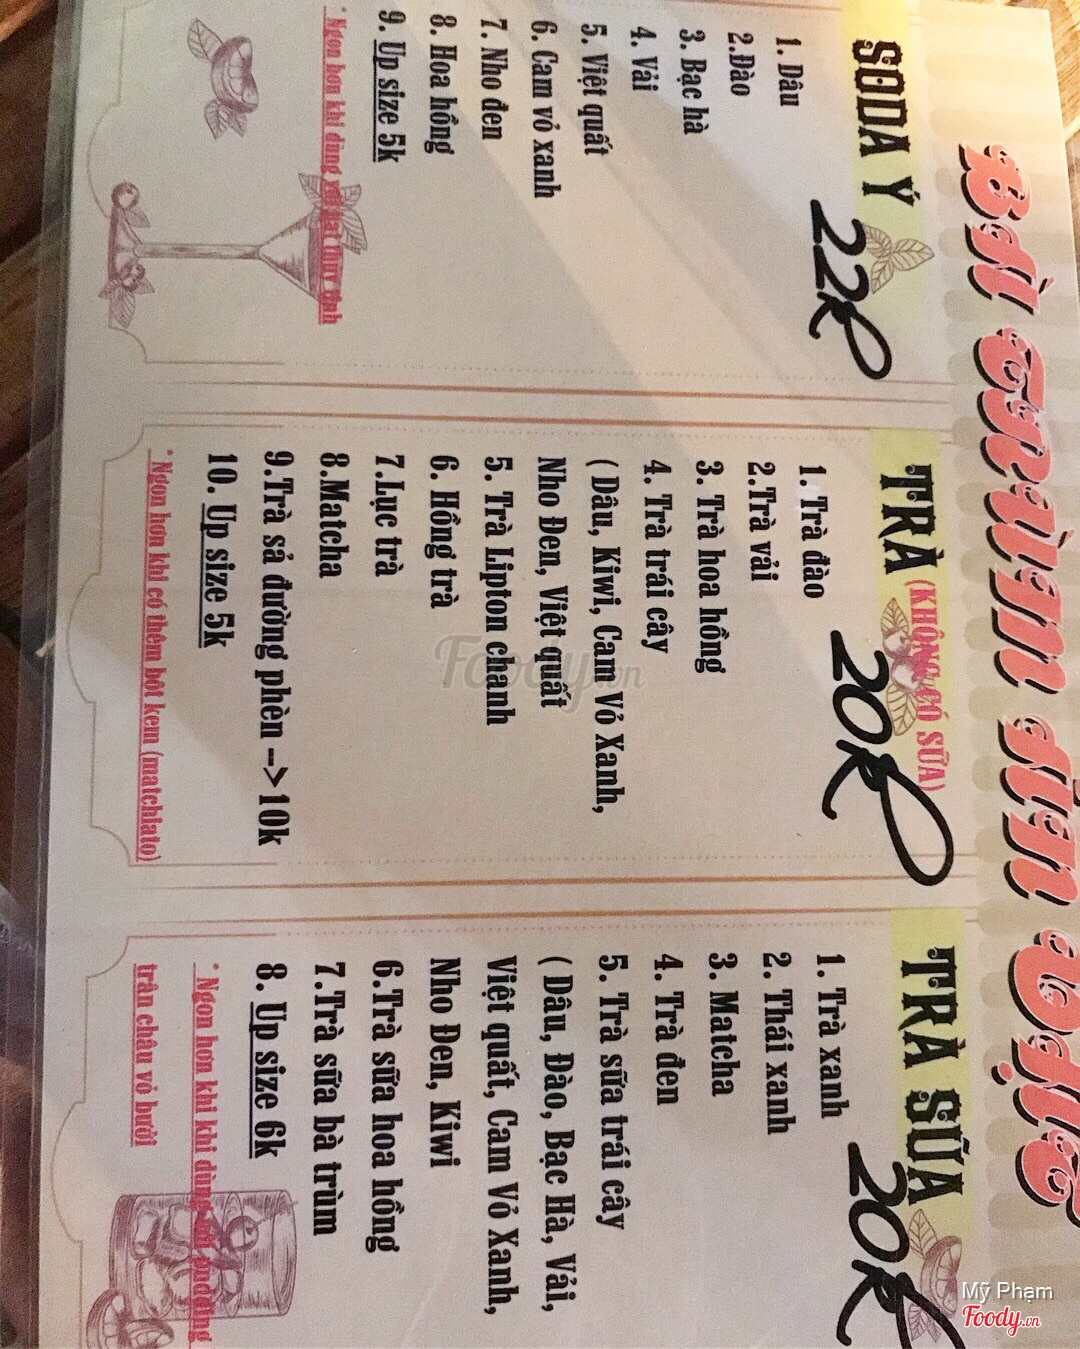 Bà Trùm Ăn Vặt
SODA Ý
22k
1. Dâu
2.Đào
3. Bạc hà
4. Vải
5. Việt quất
6. Cam vỏ xanh
7. Nho đen
8. Hoa hồng
9. Up size 5k
* Ngon hơn khi dùng với hạt thủy tinh
TRÀ (KHÔNG CÓ SỮA)
20k
1. Trà đào
2.Trà vải
3. Trà hoa hồng
4. Trà trái cây
( Dâu, Kiwi, Cam Vỏ Xanh,
Nho Đen, Việt quất
5. Trà Lipton chanh
6. Hồng trà
7.Lục trà
8.Matcha
9.Trà sả đường phèn -->10k
10. Up size 5k
* Ngon hơn khi có thêm bột kem (matchiato)
TRÀ SỮA
20k
1. Trà xanh
2. Thái xanh
3. Matcha
4. Trà đen
5. Trà sữa trái cây
( Dâu, Đào, Bạc Hà, Vải,
Việt quất, Cam Vỏ Xanh,
Nho Đen, Kiwi
6.Trà sữa hoa hồng
7.Trà sữa bà trùm
8. Up size 6k
* Ngon hơn khi khi dùng với pudding
trân châu vỏ bưởi
Foody.vn
Mỹ Phạm
Foody.vn